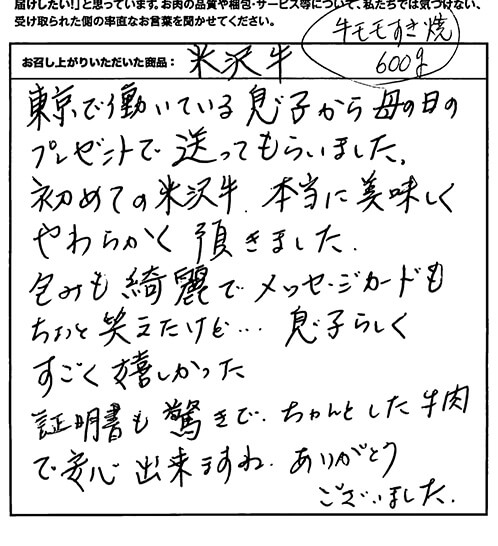 届けしたい!」と思っています。お肉の品質や梱包・サービス等について、私たちでは気づけない、
受け取られた側の率直なお言葉を聞かせてください。
牛モモすき焼
600g
お召し上がりいただいた商品: 米沢牛
東京で働いている息子から母の日の
プレゼントで送ってもらいました。
初めての米沢牛、本当に美味しく
やわらかく頂きました。
包みも綺麗でメッセージカードも
ちょっと笑えたけど… 息子らしく
すごく嬉しかった
証明書も驚きで、ちゃんとした牛肉
で安心出来ますね。ありがとう
ございました。